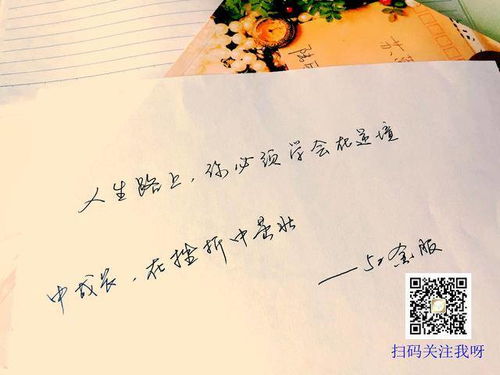 人生路上，你必须学会在逆境
中成长，在挫折中茁壮
——52金服
扫码关注我呀